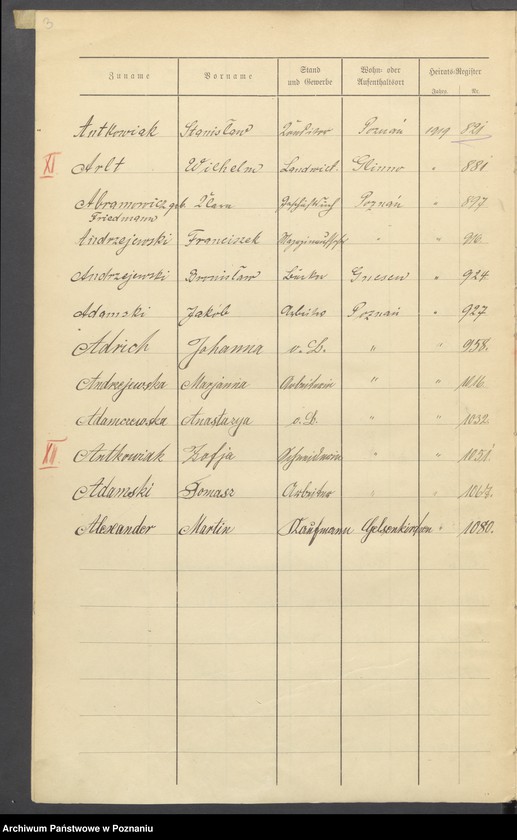 3
Zuname Vorname Stand und Gewerbe Wohn- oder Aufenthaltsort Heirats-Register
Jahrg. Nr.
Antkowiak Stanisław Konditor Poznań 1919 821
XI Arlt Wilhelm Landwirt Glinno " 881
Abramowicz geb. Klara Poznań " 897
Friedmann
Andrzejewski Franciszek " " 916.
Andrzejewski Bronisław Bäcker Gnesen " 924
Adamski Jakób Arbeiter Poznań " 927
Adrich Johanna o.B. " " 958.
Andrzejewska Marjanna Arbeiterin " " 1016.
Adamczewska Anastazja o.B. " " 1032.
XII Antkowiak Zofja Schneiderin " " 1051
Adamski Tomasz Arbeiter " " 1067.
Alexander Martin Kaufmann Gelsenkirchen " 1080.
Archiwum Państwowe w Poznaniu